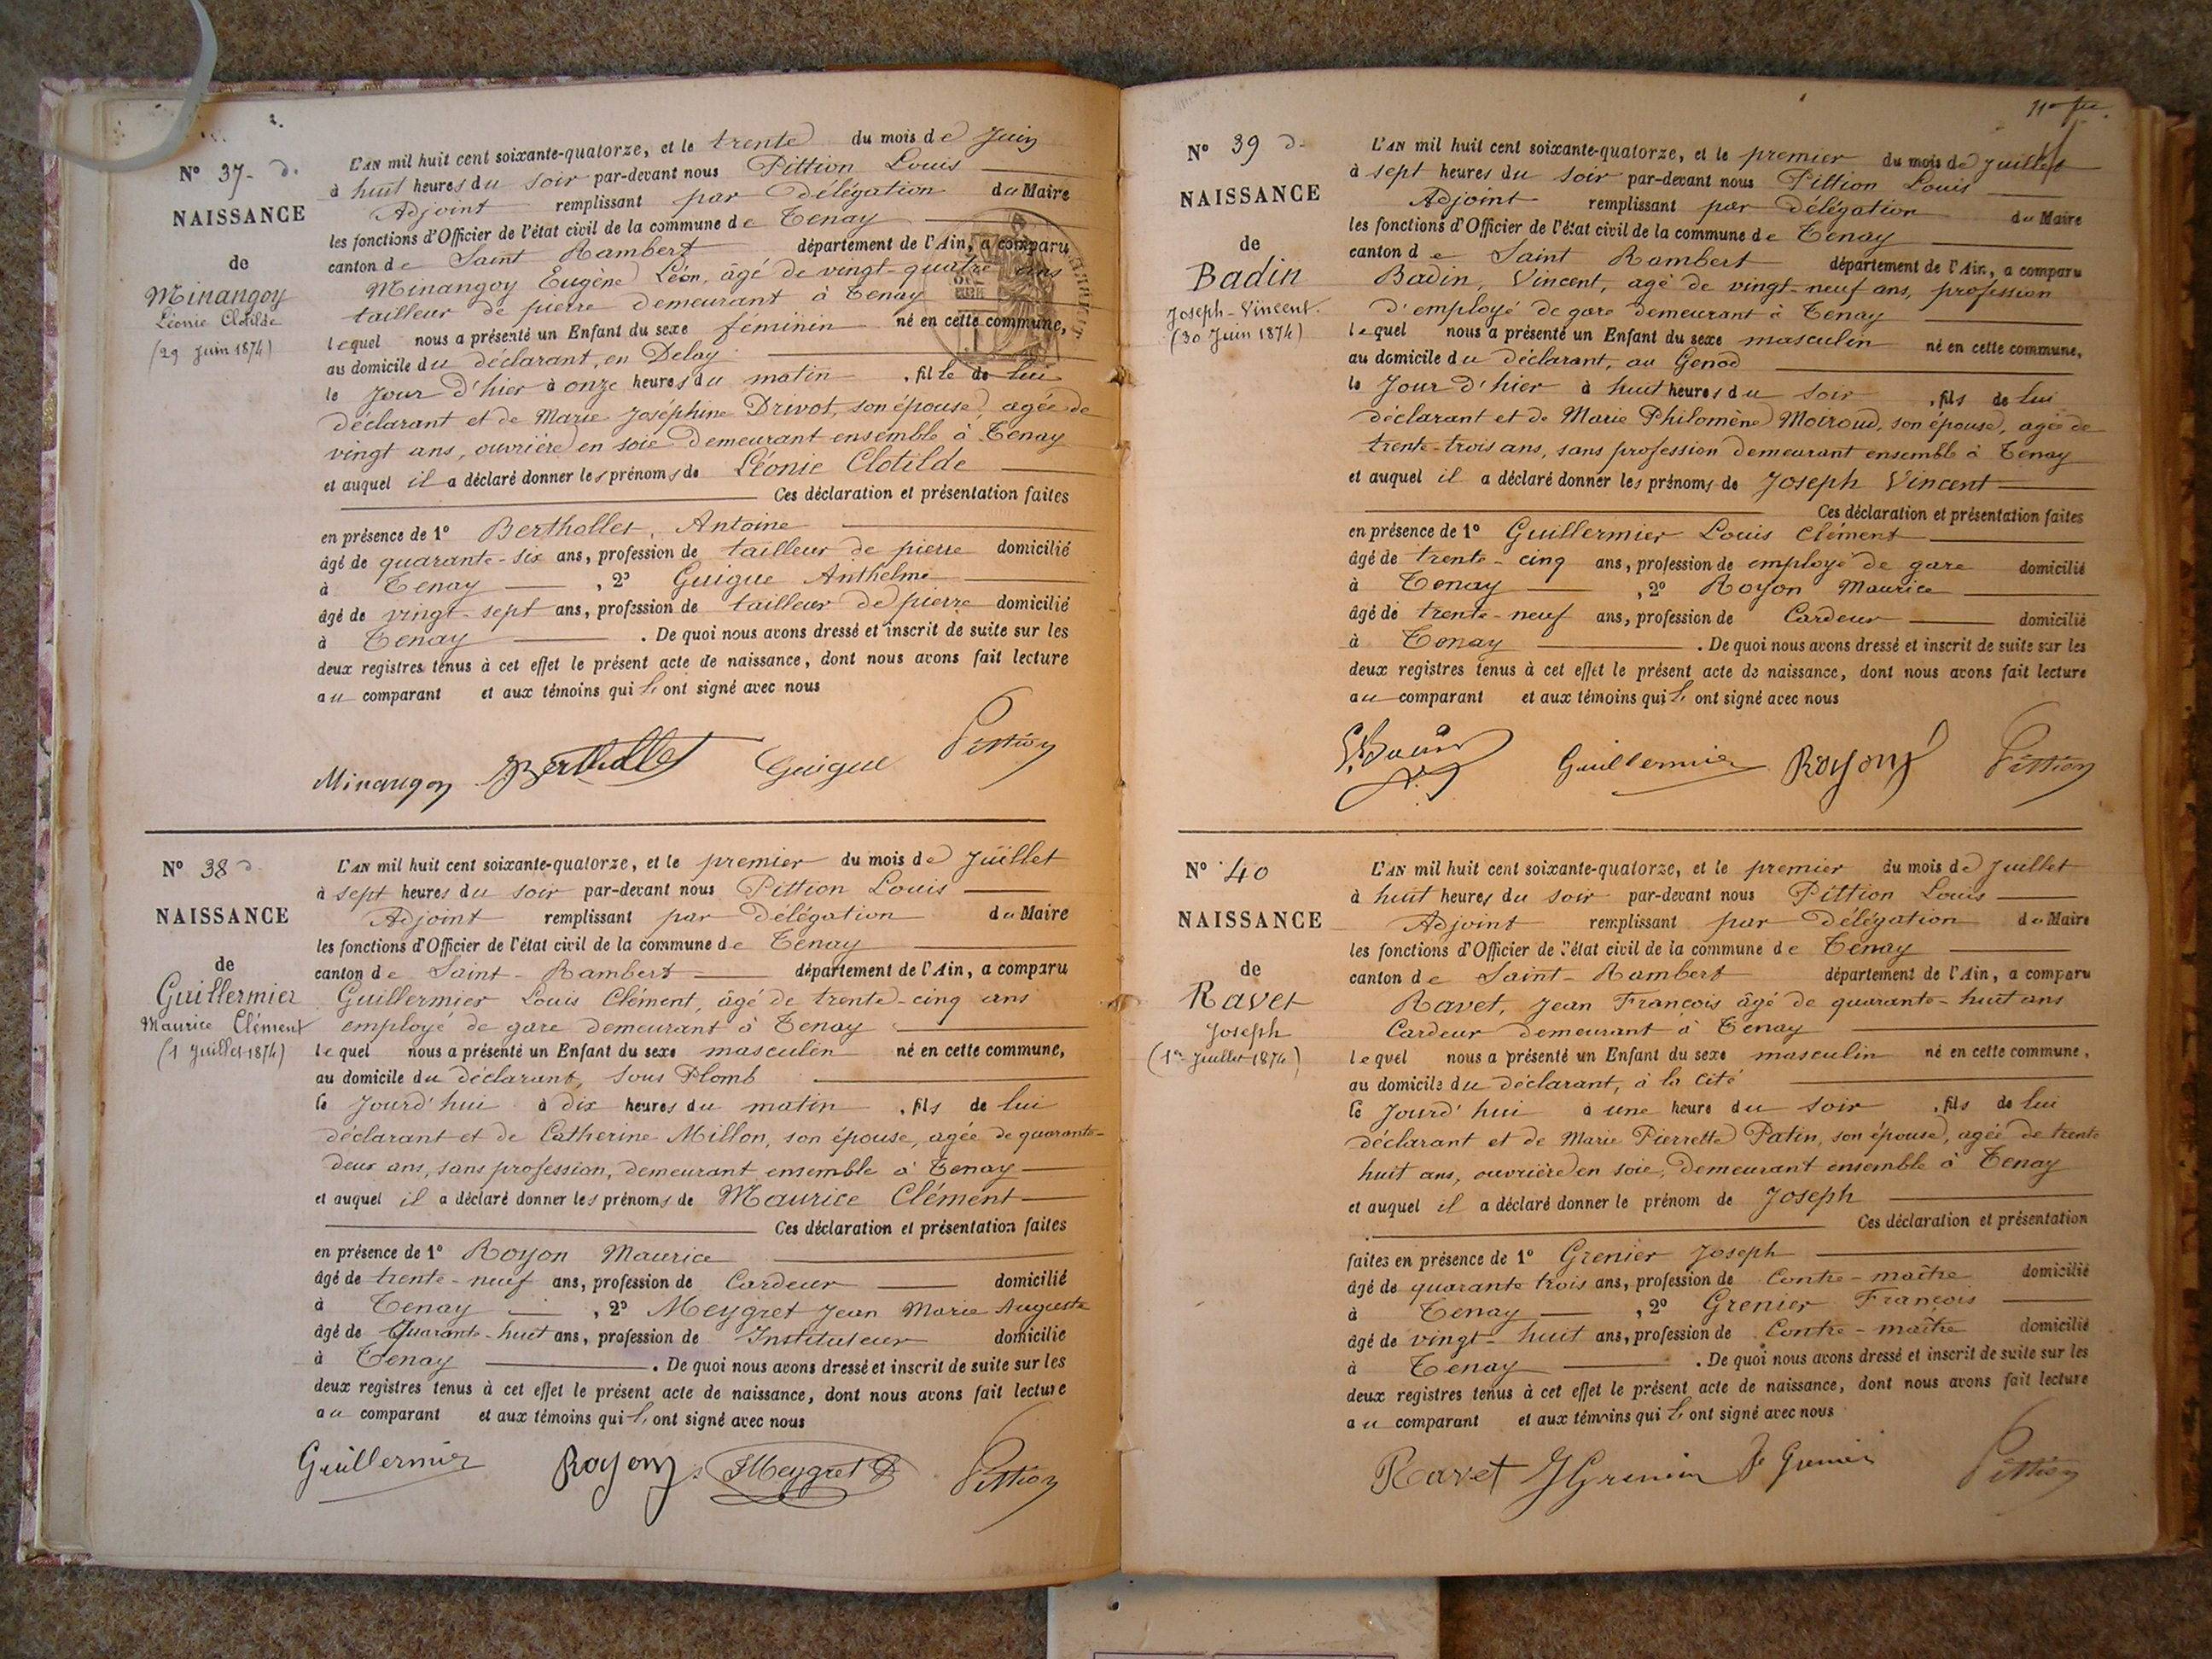 N° 37 d.
NAISSANCE
de
Minangoy
Léonie Clotilde
(29 Juin 1874)
L'AN mil huit cent soixante-quatorze, et le trente du mois de Juin
à huit heures du soir par-devant nous Pittion Louis
Adjoint remplissant par délégation du Maire
les fonctions d'Officier de l'état civil de la commune de Tenay
canton de Saint Rambert département de l'Ain, a comparu
Minangoy Eugène Léon, âgé de vingt-quatre ans
tailleur de pierre demeurant à Tenay
lequel nous a présenté un Enfant du sexe féminin né en cette commune,
au domicile du déclarant, en Delay
le Jour d'hier à onze heures du matin , fille de lui
déclarant et de Marie Joséphine Drivot, son épouse, agée de
vingt ans, ouvrière en soie demeurant ensemble à Tenay
et auquel il a déclaré donner les prénoms de Léonie Clotilde
Ces déclaration et présentation faites
en présence de 1° Berthollet, Antoine
âgé de quarante-six ans, profession de tailleur de pierre domicilié
à Tenay , 2° Guigue Anthelme
âgé de vingt-sept ans, profession de tailleur de pierre domicilié
à Tenay . De quoi nous avons dressé et inscrit de suite sur les
deux registres tenus à cet effet le présent acte de naissance, dont nous avons fait lecture
au comparant et aux témoins qui ont signé avec nous
Minangoy Berthollet Guigue Pittion
N° 38 d
NAISSANCE
de
Guillermier
Maurice Clément
(1 Juillet 1874)
L'AN mil huit cent soixante-quatorze, et le premier du mois de Juillet
à sept heures du soir par-devant nous Pittion Louis
Adjoint remplissant par délégation du Maire
les fonctions d'Officier de l'état civil de la commune de Tenay
canton de Saint-Rambert département de l'Ain, a comparu
Guillermier Louis Clément, âgé de trente-cinq ans
employé de gare demeurant à Tenay
lequel nous a présenté un Enfant du sexe masculin né en cette commune,
au domicile du déclarant, sous Plomb
le Jourd'hui à dix heures du matin , fils de lui
déclarant et de Catherine Millon, son épouse, agée de quarante-
deux ans, sans profession, demeurant ensemble à Tenay
et auquel il a déclaré donner les prénoms de Maurice Clément
Ces déclaration et présentation faites
en présence de 1° Royon Maurice
âgé de trente-neuf ans, profession de Cardeur domicilié
à Tenay , 2° Meygret Jean Marie Auguste
âgé de Quarante-huit ans, profession de Instituteur domicilié
à Tenay . De quoi nous avons dressé et inscrit de suite sur les
deux registres tenus à cet effet le présent acte de naissance, dont nous avons fait lecture
au comparant et aux témoins qui ont signé avec nous
Guillermier Royon Meygret Pittion
N° 39 d.
NAISSANCE
de
Badin
Joseph-Vincent.
(30 Juin 1874)
L'AN mil huit cent soixante-quatorze, et le premier du mois de Juillet
à sept heures du soir par-devant nous Pittion Louis
Adjoint remplissant par délégation du Maire
les fonctions d'Officier de l'état civil de la commune de Tenay
canton de Saint Rambert département de l'Ain, a comparu
Badin, Vincent, agé de vingt-neuf ans, profession
d'employé de gare demeurant à Tenay
lequel nous a présenté un Enfant du sexe masculin né en cette commune,
au domicile du déclarant, au Genod
le Jour d'hier à huit heures du soir , fils de lui
déclarant et de Marie Philomène Moiroud, son épouse, agée de
trente-trois ans, sans profession demeurant ensemble à Tenay
et auquel il a déclaré donner les prénoms de Joseph Vincent
Ces déclaration et présentation faites
en présence de 1° Guillermier Louis Clément
âgé de trente-cinq ans, profession de employé de gare domicilié
à Tenay , 2° Royon Maurice
âgé de trente-neuf ans, profession de Cardeur domicilié
à Tenay . De quoi nous avons dressé et inscrit de suite sur les
deux registres tenus à cet effet le présent acte de naissance, dont nous avons fait lecture
au comparant et aux témoins qui ont signé avec nous
Guillermier Royon Pittion
N° 40
NAISSANCE
de
Ravet
Joseph
(1er Juillet 1874)
L'AN mil huit cent soixante-quatorze, et le premier du mois de Juillet
à huit heures du soir par-devant nous Pittion Louis
Adjoint remplissant par délégation du Maire
les fonctions d'Officier de l'état civil de la commune de Tenay
canton de Saint-Rambert département de l'Ain, a comparu
Ravet, Jean François âgé de quarante-huit ans
Cardeur demeurant à Tenay
lequel nous a présenté un Enfant du sexe masculin né en cette commune,
au domicile du déclarant, à la Cité
le Jourd'hui à une heure du soir , fils de lui
déclarant et de Marie Pierrette Patin, son épouse, agée de trente
huit ans, ouvrière en soie, demeurant ensemble à Tenay
et auquel il a déclaré donner le prénom de Joseph
Ces déclaration et présentation
faites en présence de 1° Grenier Joseph
âgé de quarante trois ans, profession de Contre-maître domicilié
à Tenay , 2° Grenier François
âgé de vingt-huit ans, profession de Contre-maître domicilié
à Tenay . De quoi nous avons dressé et inscrit de suite sur les
deux registres tenus à cet effet le présent acte de naissance, dont nous avons fait lecture
au comparant et aux témoins qui ont signé avec nous
Ravet J Grenier F Grenier Pittion